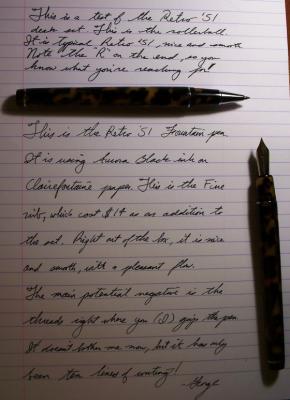 This is a test of the Retro '51
desk set. This is the rollerball.
It is typical Retro '51, nice and smooth
Note the 'R' on the end, so you
know what you're reaching for!
This is the Retro '51 Fountain pen
It is using Aurora black ink on
Clairefontaine paper. This is the Fine
nib, which cost $14 as an addition to
the set. Right out of the box, it is nice
and smooth, with a pleasant flow.
The main potential negative is the
threads right where you (I) grip the pen
It doesn't bother me now, but it has only
been ten lines of writing!